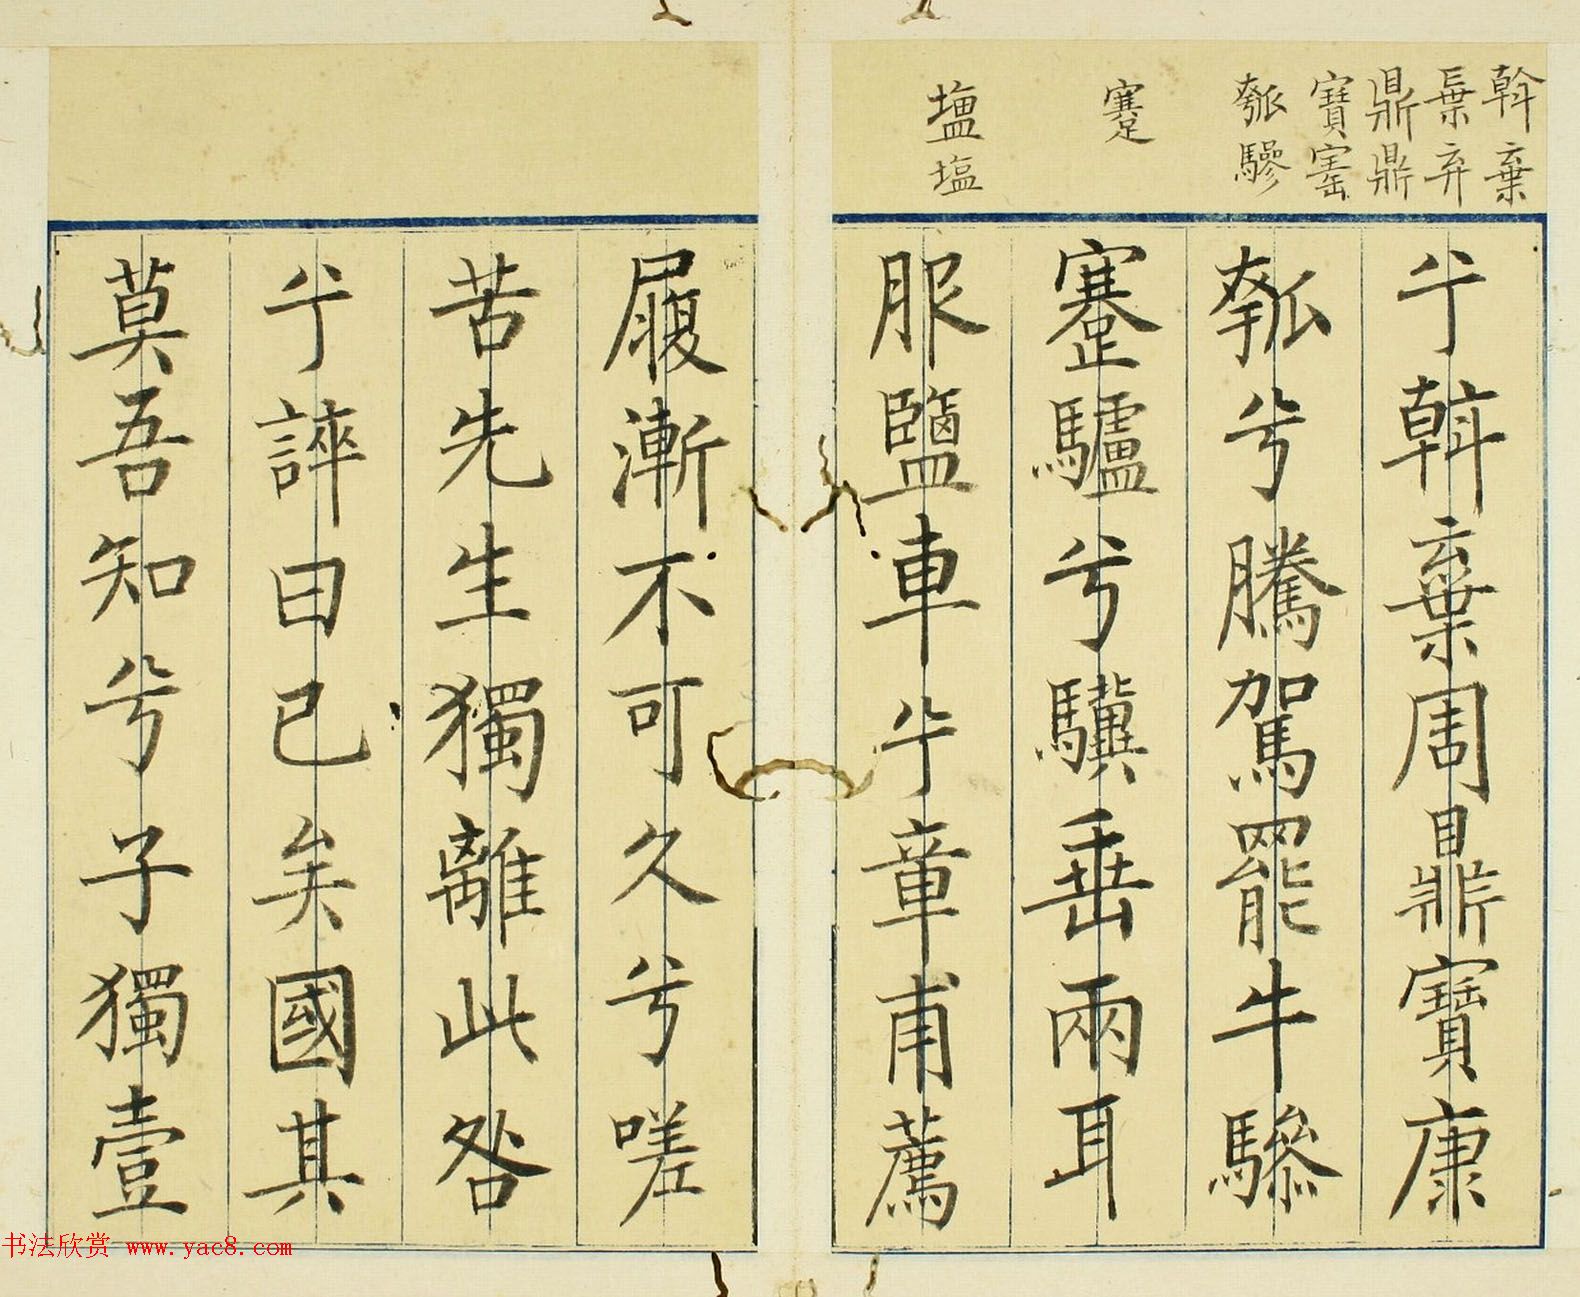 斡棄
弃
鼎鼎
寶
瓠驂
蹇
塩
兮斡棄周鼎寶康
瓠兮騰駕罷牛驂
蹇驢兮驥垂兩耳
服鹽車兮章甫薦
履漸不可久兮嗟
苦先生獨離此咎
兮誶曰已矣國其
莫吾知兮子獨壹
书法欣赏 www.yac8.com